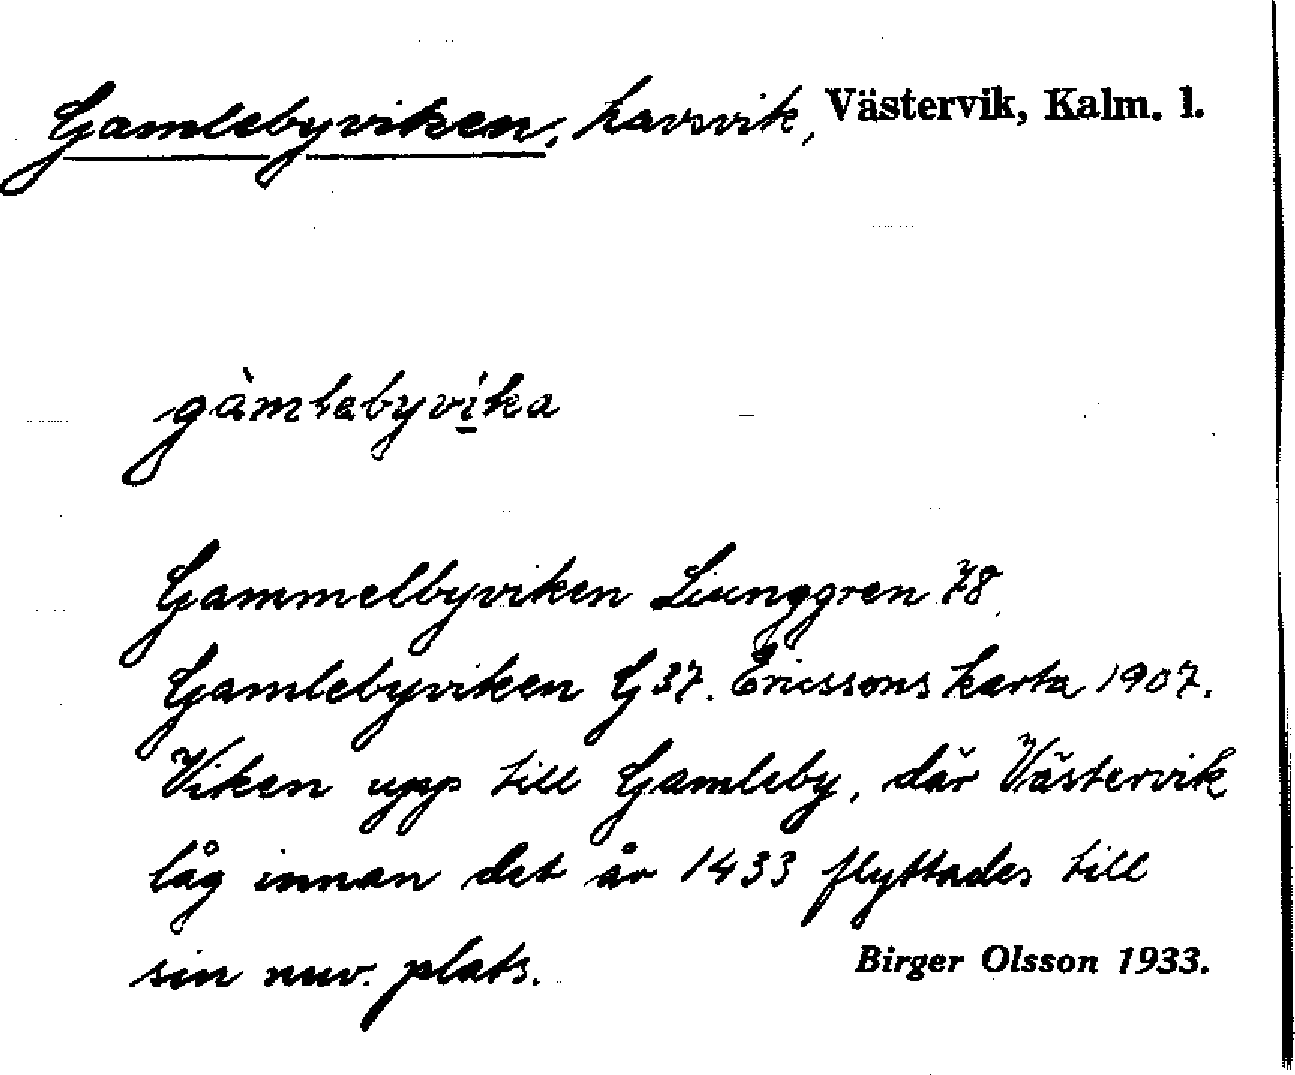 Gamlebyviken, havsvik, Västervik, Kalm. l.
gàmlebyvi̲ka
Gammelbyviken Liunggren 78.
Gamlebyviken G 37. Ericssons karta 1907.
Viken upp till Gamleby, där Västervik
låg innan det år 1433 flyttades till
sin nuv. plats. Birger Olsson 1933.